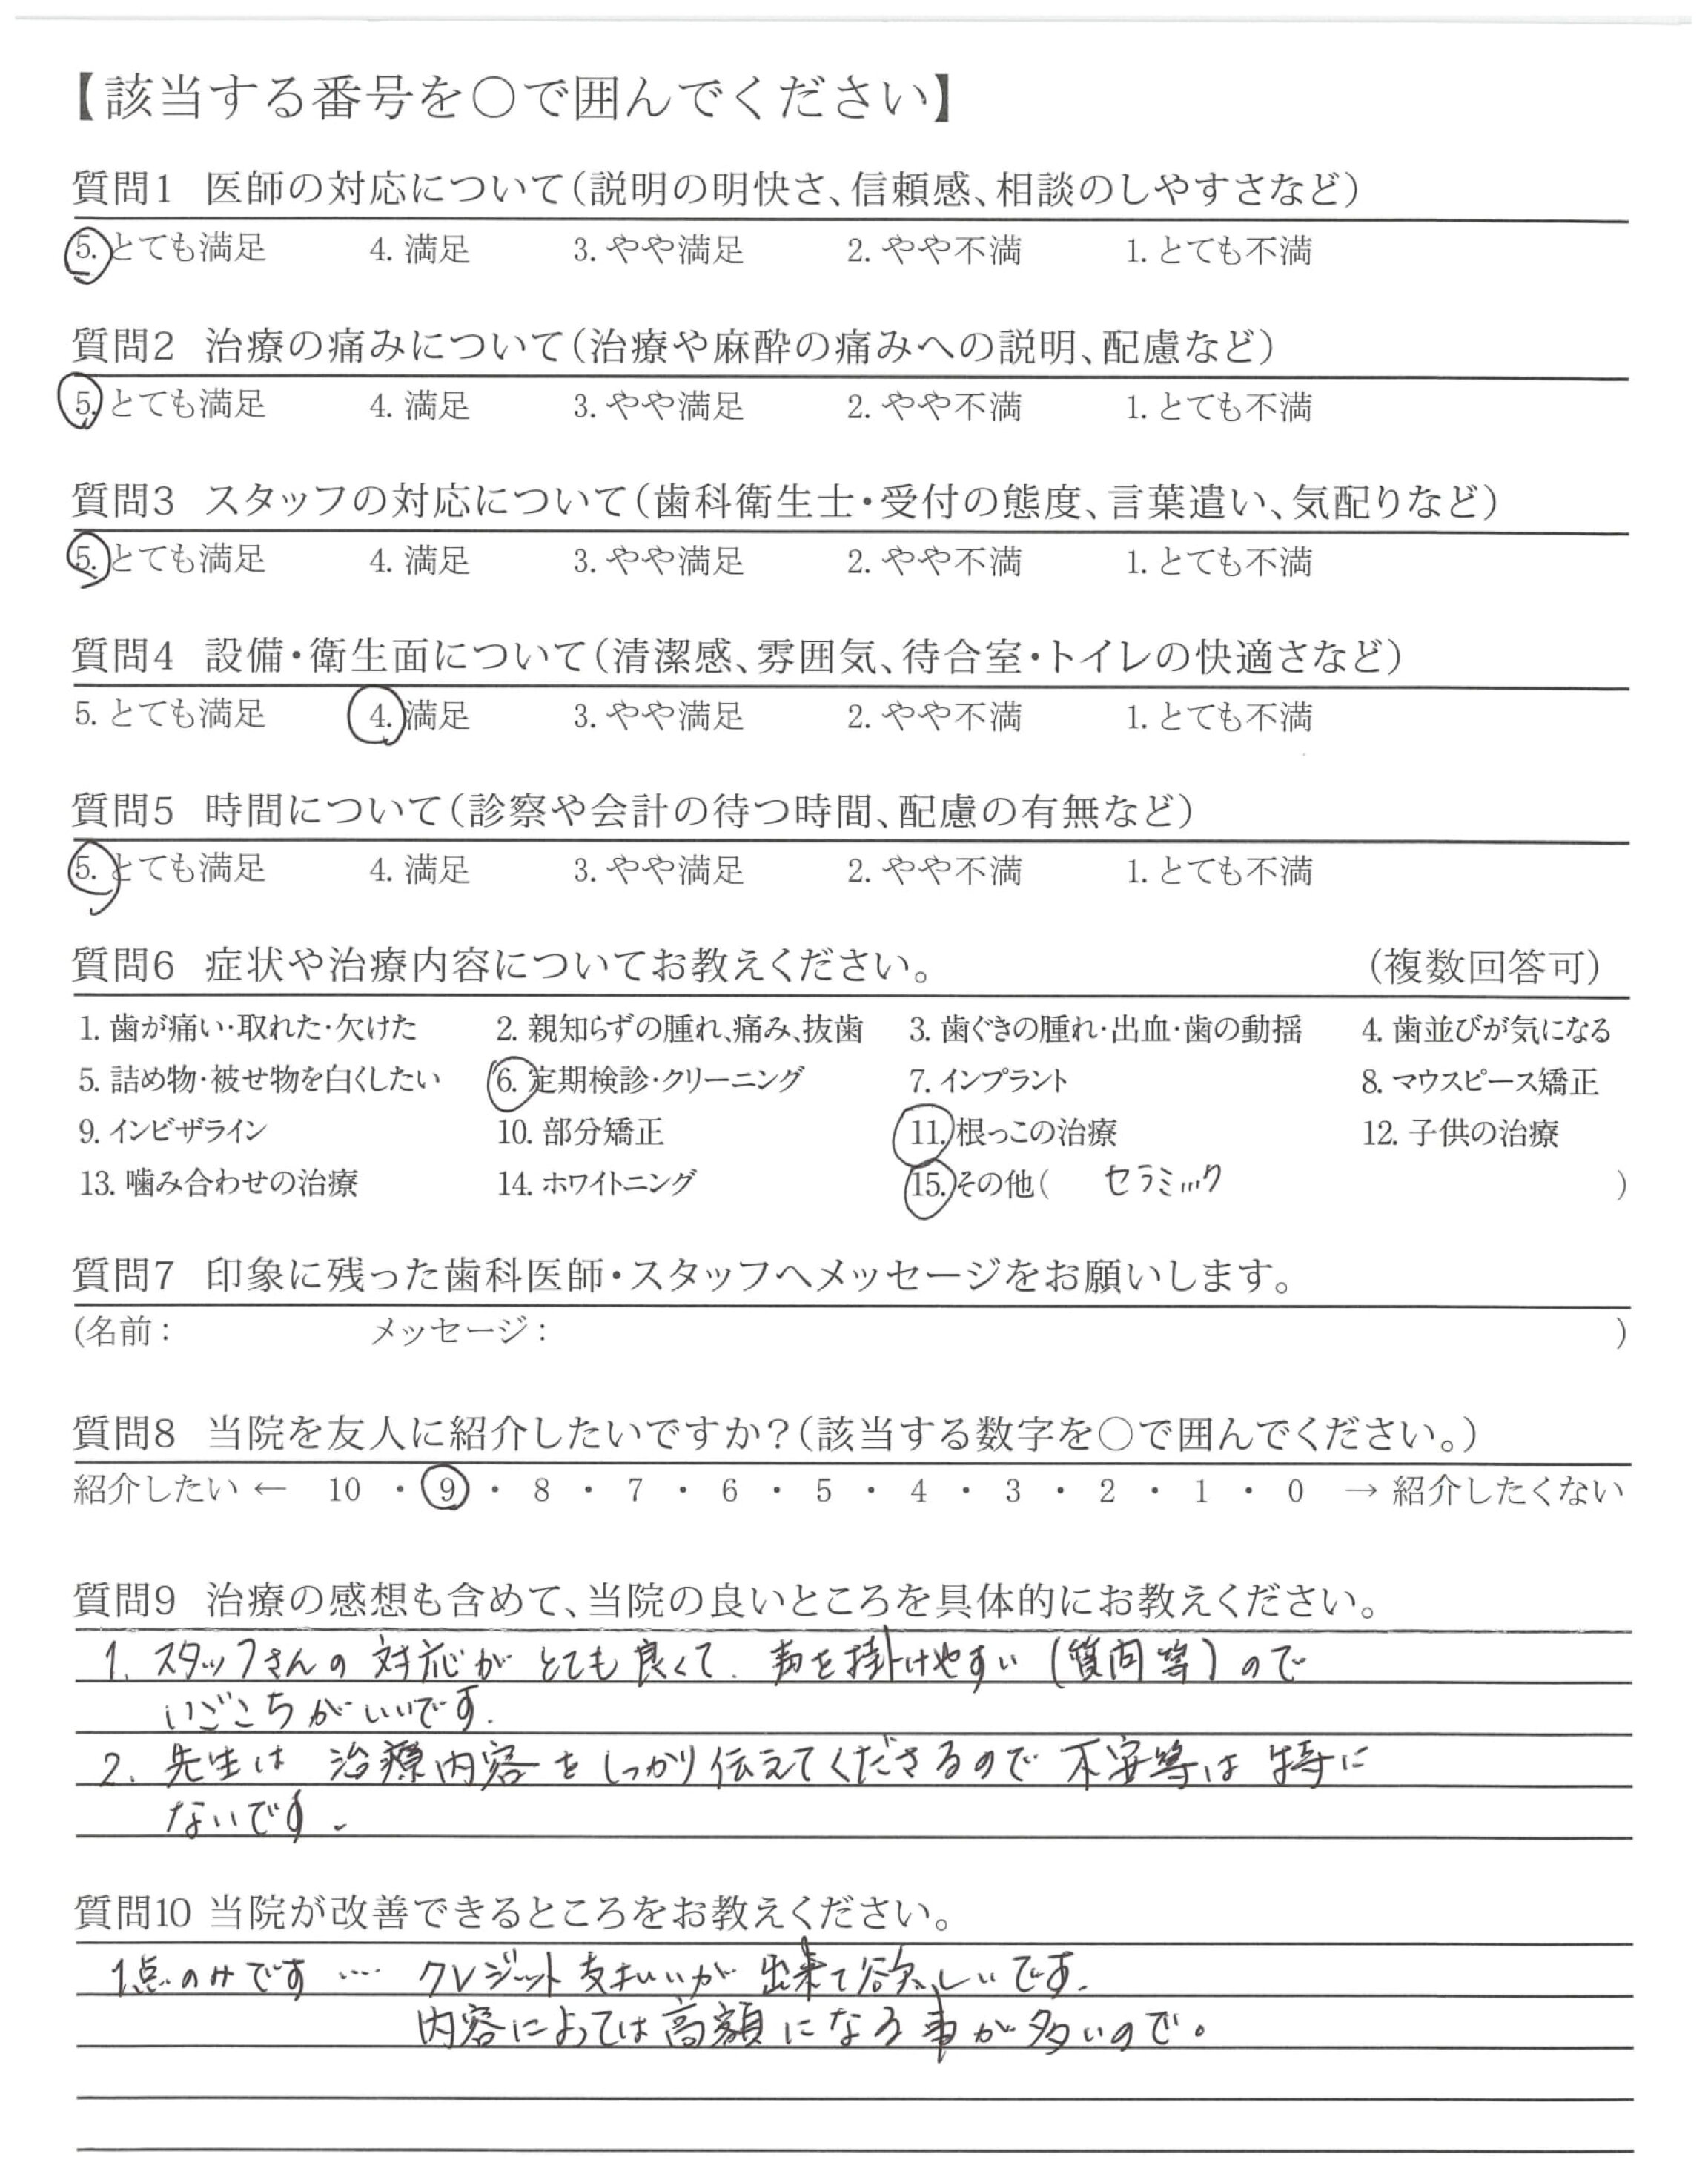 【該当する番号を○で囲んでください】
質問1 医師の対応について（説明の明快さ、信頼感、相談のしやすさなど）
5. とても満足 4. 満足 3. やや満足 2. やや不満 1. とても不満
質問2 治療の痛みについて（治療や麻酔の痛みへの説明、配慮など）
5. とても満足 4. 満足 3. やや満足 2. やや不満 1. とても不満
質問3 スタッフの対応について（歯科衛生士・受付の態度、言葉遣い、気配りなど）
5. とても満足 4. 満足 3. やや満足 2. やや不満 1. とても不満
質問4 設備・衛生面について（清潔感、雰囲気、待合室・トイレの快適さなど）
5. とても満足 4. 満足 3. やや満足 2. やや不満 1. とても不満
質問5 時間について（診察や会計の待つ時間、配慮の有無など）
5. とても満足 4. 満足 3. やや満足 2. やや不満 1. とても不満
質問6 症状や治療内容についてお教えください。 （複数回答可）
1. 歯が痛い・取れた・欠けた 2. 親知らずの腫れ、痛み、抜歯 3. 歯ぐきの腫れ・出血・歯の動揺 4. 歯並びが気になる
5. 詰め物・被せ物を白くしたい 6. 定期検診・クリーニング 7. インプラント 8. マウスピース矯正
9. インビザライン 10. 部分矯正 11. 根っこの治療 12. 子供の治療
13. 噛み合わせの治療 14. ホワイトニング 15. その他（ セラミック ）
質問7 印象に残った歯科医師・スタッフへメッセージをお願いします。
（名前： メッセージ： ）
質問8 当院を友人に紹介したいですか？（該当する数字を○で囲んでください。）
紹介したい ← 10 ・ 9 ・ 8 ・ 7 ・ 6 ・ 5 ・ 4 ・ 3 ・ 2 ・ 1 ・ 0 → 紹介したくない
質問9 治療の感想も含めて、当院の良いところを具体的にお教えください。
1. スタッフさんの対応がとても良くて、声を掛けやすい（質問等）ので
いごこちがいいです。
2. 先生は 治療内容をしっかり伝えてくださるので 不安等は特に
ないです。
質問10 当院が改善できるところをお教えください。
1点のみです… クレジット支払いが出来て欲しいです。
内容によっては高額になる事が多いので。